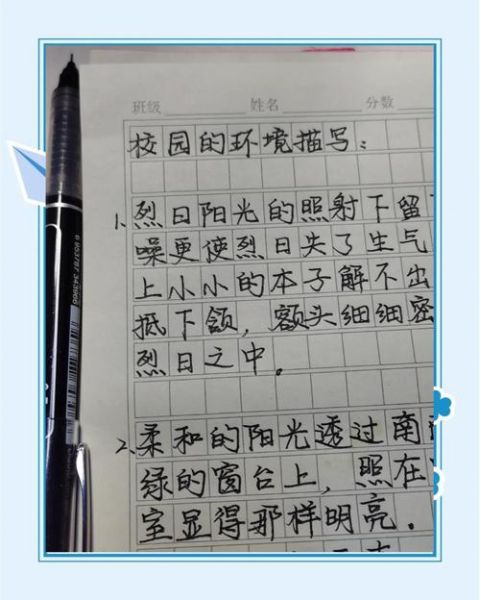 班级 姓名 分数
校园的环境描写：
1、烈日阳光的照射下留
噪更使烈日失了生气
上小小的本子解不出
抵下颌，额头细细密
烈日之中。
2、柔和的阳光透过南
绿的窗台上，照在
室显得那样明亮．